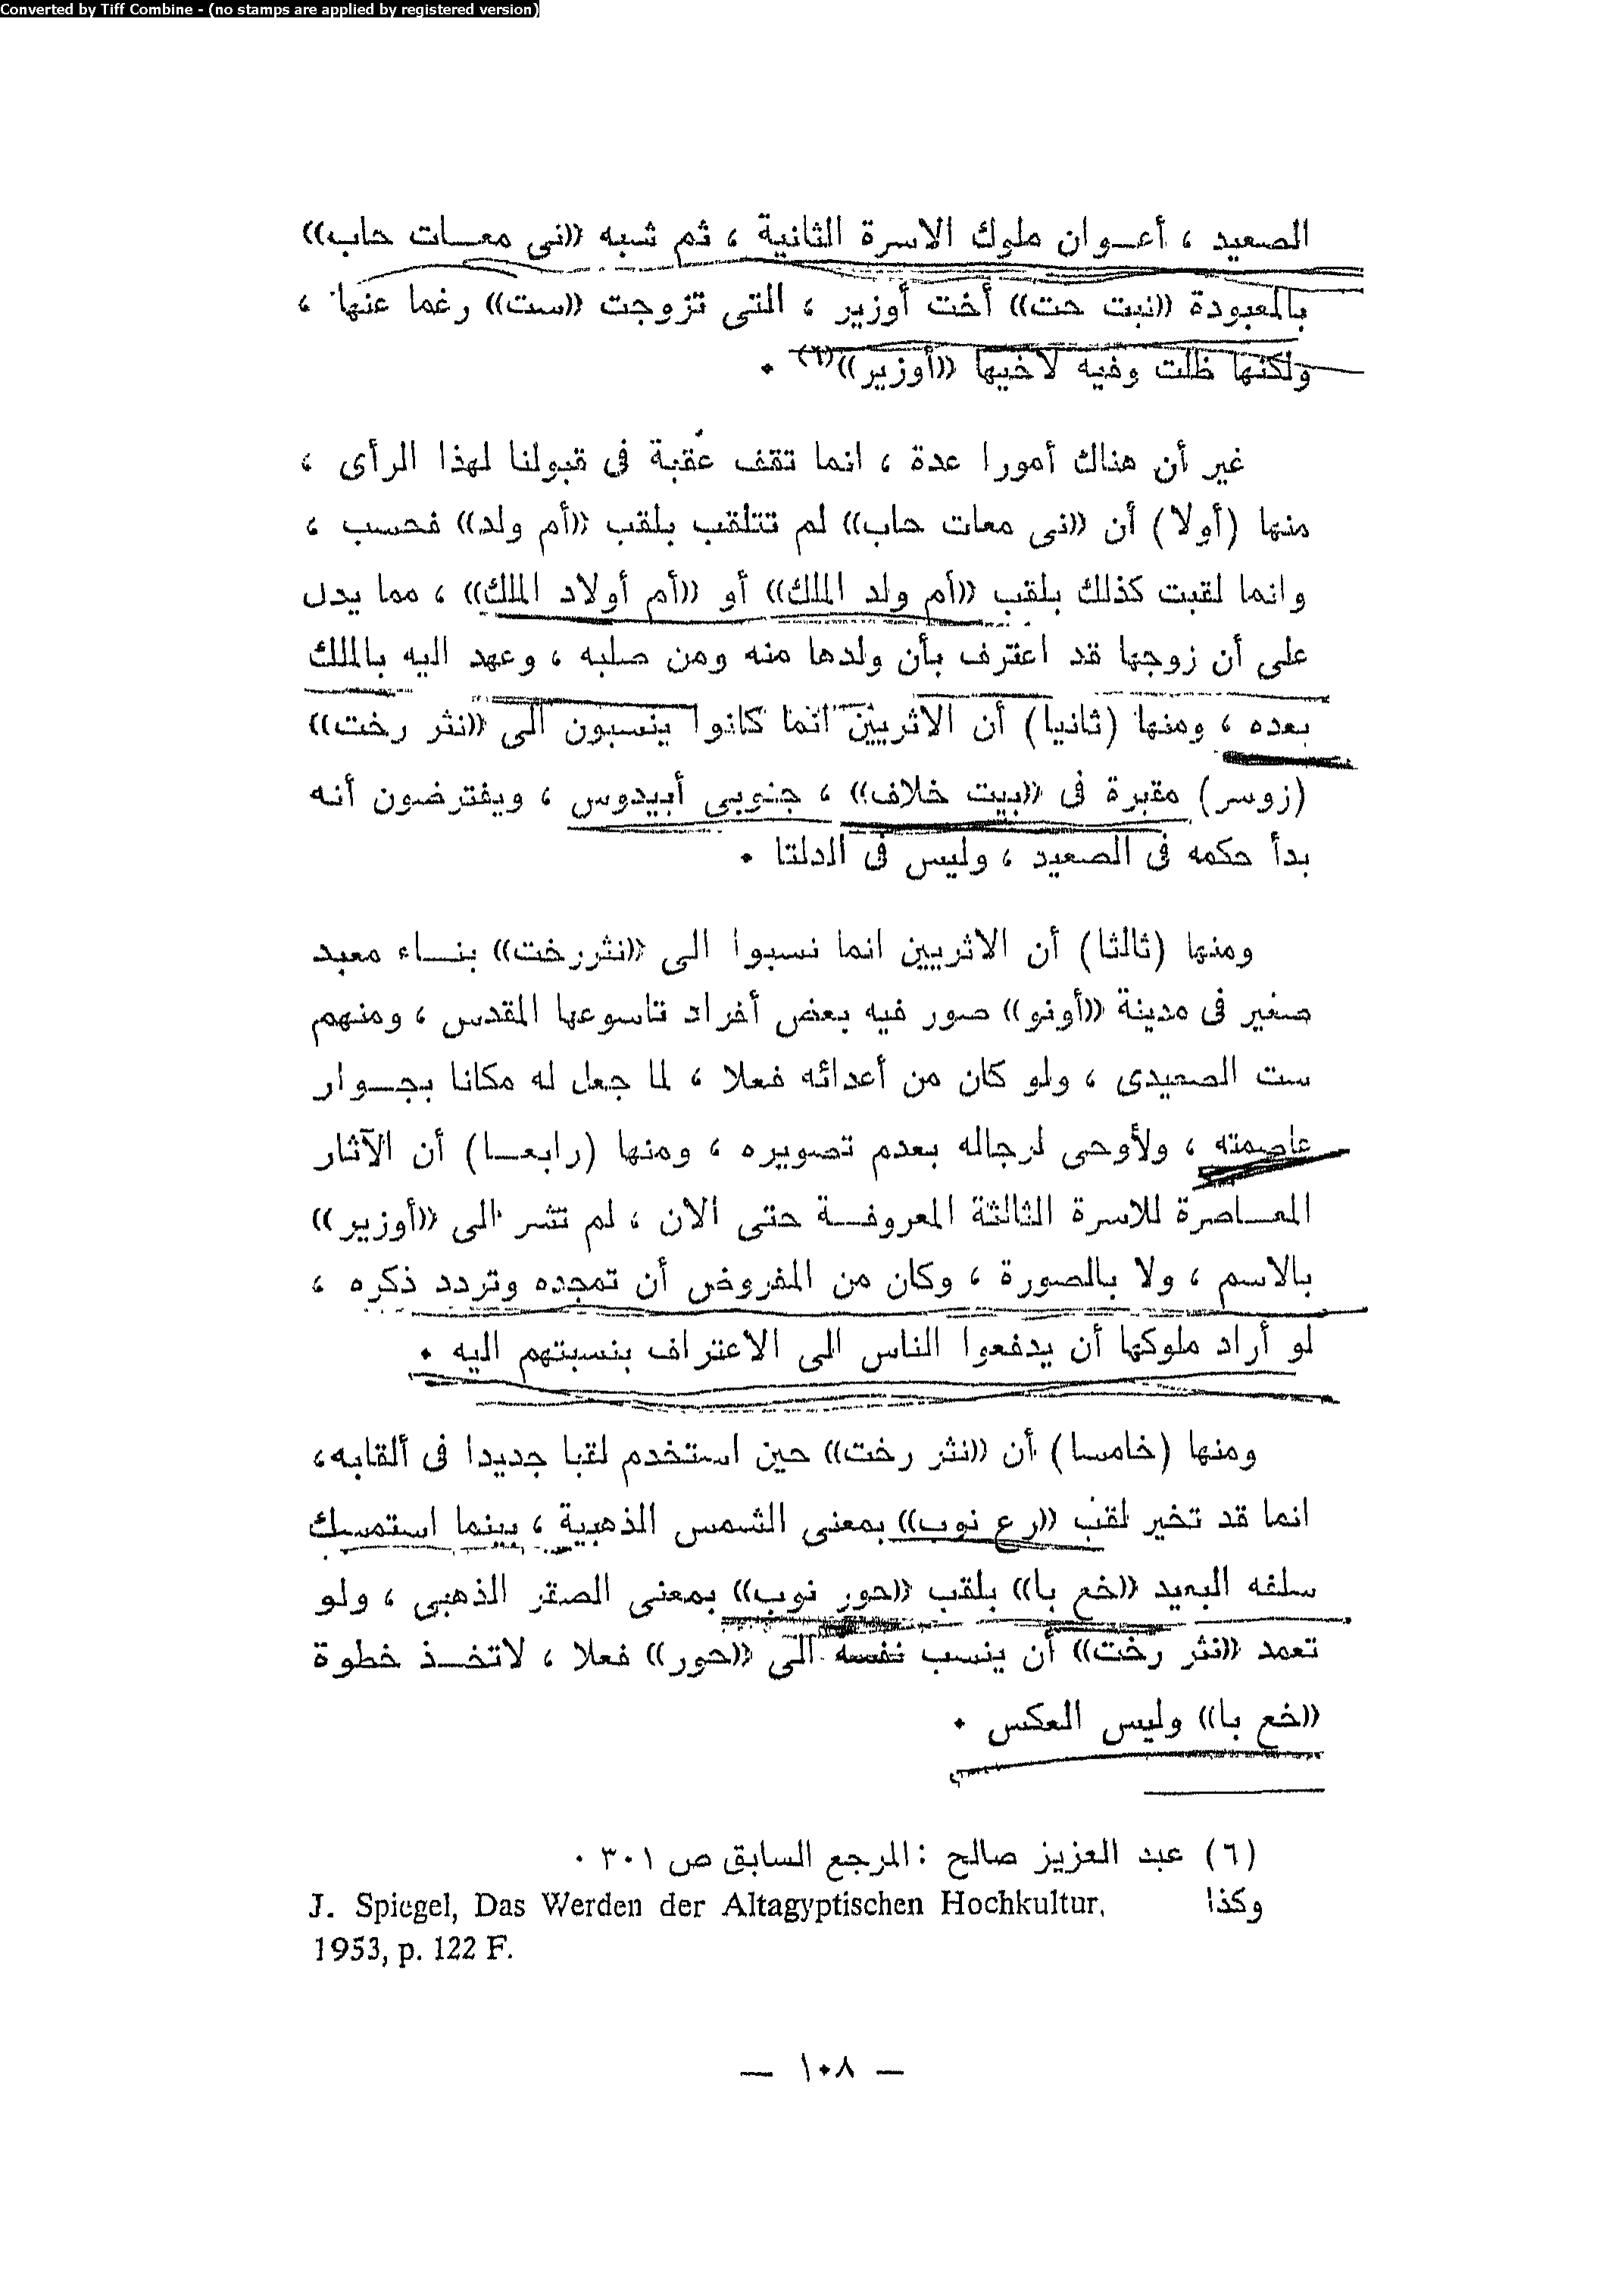 Converted by Tiff Combine - (no stamps are applied by registered version)
الصعيد ، أعـوان ملوك الاسرة الثانية ، ثم شبه «نى معـات حاب»
بالمعبودة «نبت حت» أخت أوزير ، التى تزوجت «ست» رغما عنها ،
ولكنها ظلت وفيه لاخيها «أوزير»(٦) ٠
غير أن هناك أمورا عدة ، انما تقف عقبة فى قبولنا لهذا الرأى ،
منها (أولا) أن «نى معات حاب» لم تتلقب بلقب «أم ولد» فحسب ،
وانما لقبت كذلك بلقب «أم ولد الملك» أو «أم أولاد الملك» ، مما يدل
على أن زوجها قد اعترف بأن ولدها منه ومن صلبه ، وعهد اليه بالملك
بعده ، ومنها (ثانيا) أن الاثريين انما كانوا ينسبون الى «نثر رخت»
(زوسر) مقبرة فى «بيت خلاف» ، جنوبى أبيدوس ، ويفترضون أنه
بدأ حكمه فى الصعيد ، وليس فى الدلتا ٠
ومنها (ثالثا) أن الاثريين انما نسبوا الى «نثررخت» بنـاء معبد
صغير فى مدينة «أونو» صور فيه بعض أفراد تاسوعها المقدس ، ومنهم
ست الصعيدى ، ولو كان من أعدائه فعلا ، لما جعل له مكانا بجـوار
عاصمته ، ولأوحى لرجاله بعدم تصويره ، ومنها (رابعـا) أن الآثار
المعـاصرة للاسرة الثالثة المعروفـة حتى الان ، لم تشر الى «أوزير»
بالاسم ، ولا بالصورة ، وكان من المفروض أن تمجده وتردد ذكره ،
لو أراد ملوكها أن يدفعوا الناس الى الاعتراف بنسبتهم اليه ٠
ومنها (خامسا) أن «نثر رخت» حين استخدم لقبا جديدا فى ألقابه،
انما قد تخير لقب «رع نوب» بمعنى الشمس الذهبية ، بينما استمسك
سلفه البعيد «خع با» بلقب «حور نوب» بمعنى الصقر الذهبى ، ولو
تعمد «نثر رخت» أن ينسب نفسه الى «حور» فعلا ، لاتخـذ خطوة
«خع با» وليس العكس ٠
(٦) عبد العزيز صالح : المرجع السابق ص ٣٠١ ٠
وكذا J. Spiegel, Das Werden der Altagyptischen Hochkultur,
1953, p. 122 F.
— ١٠٨ —